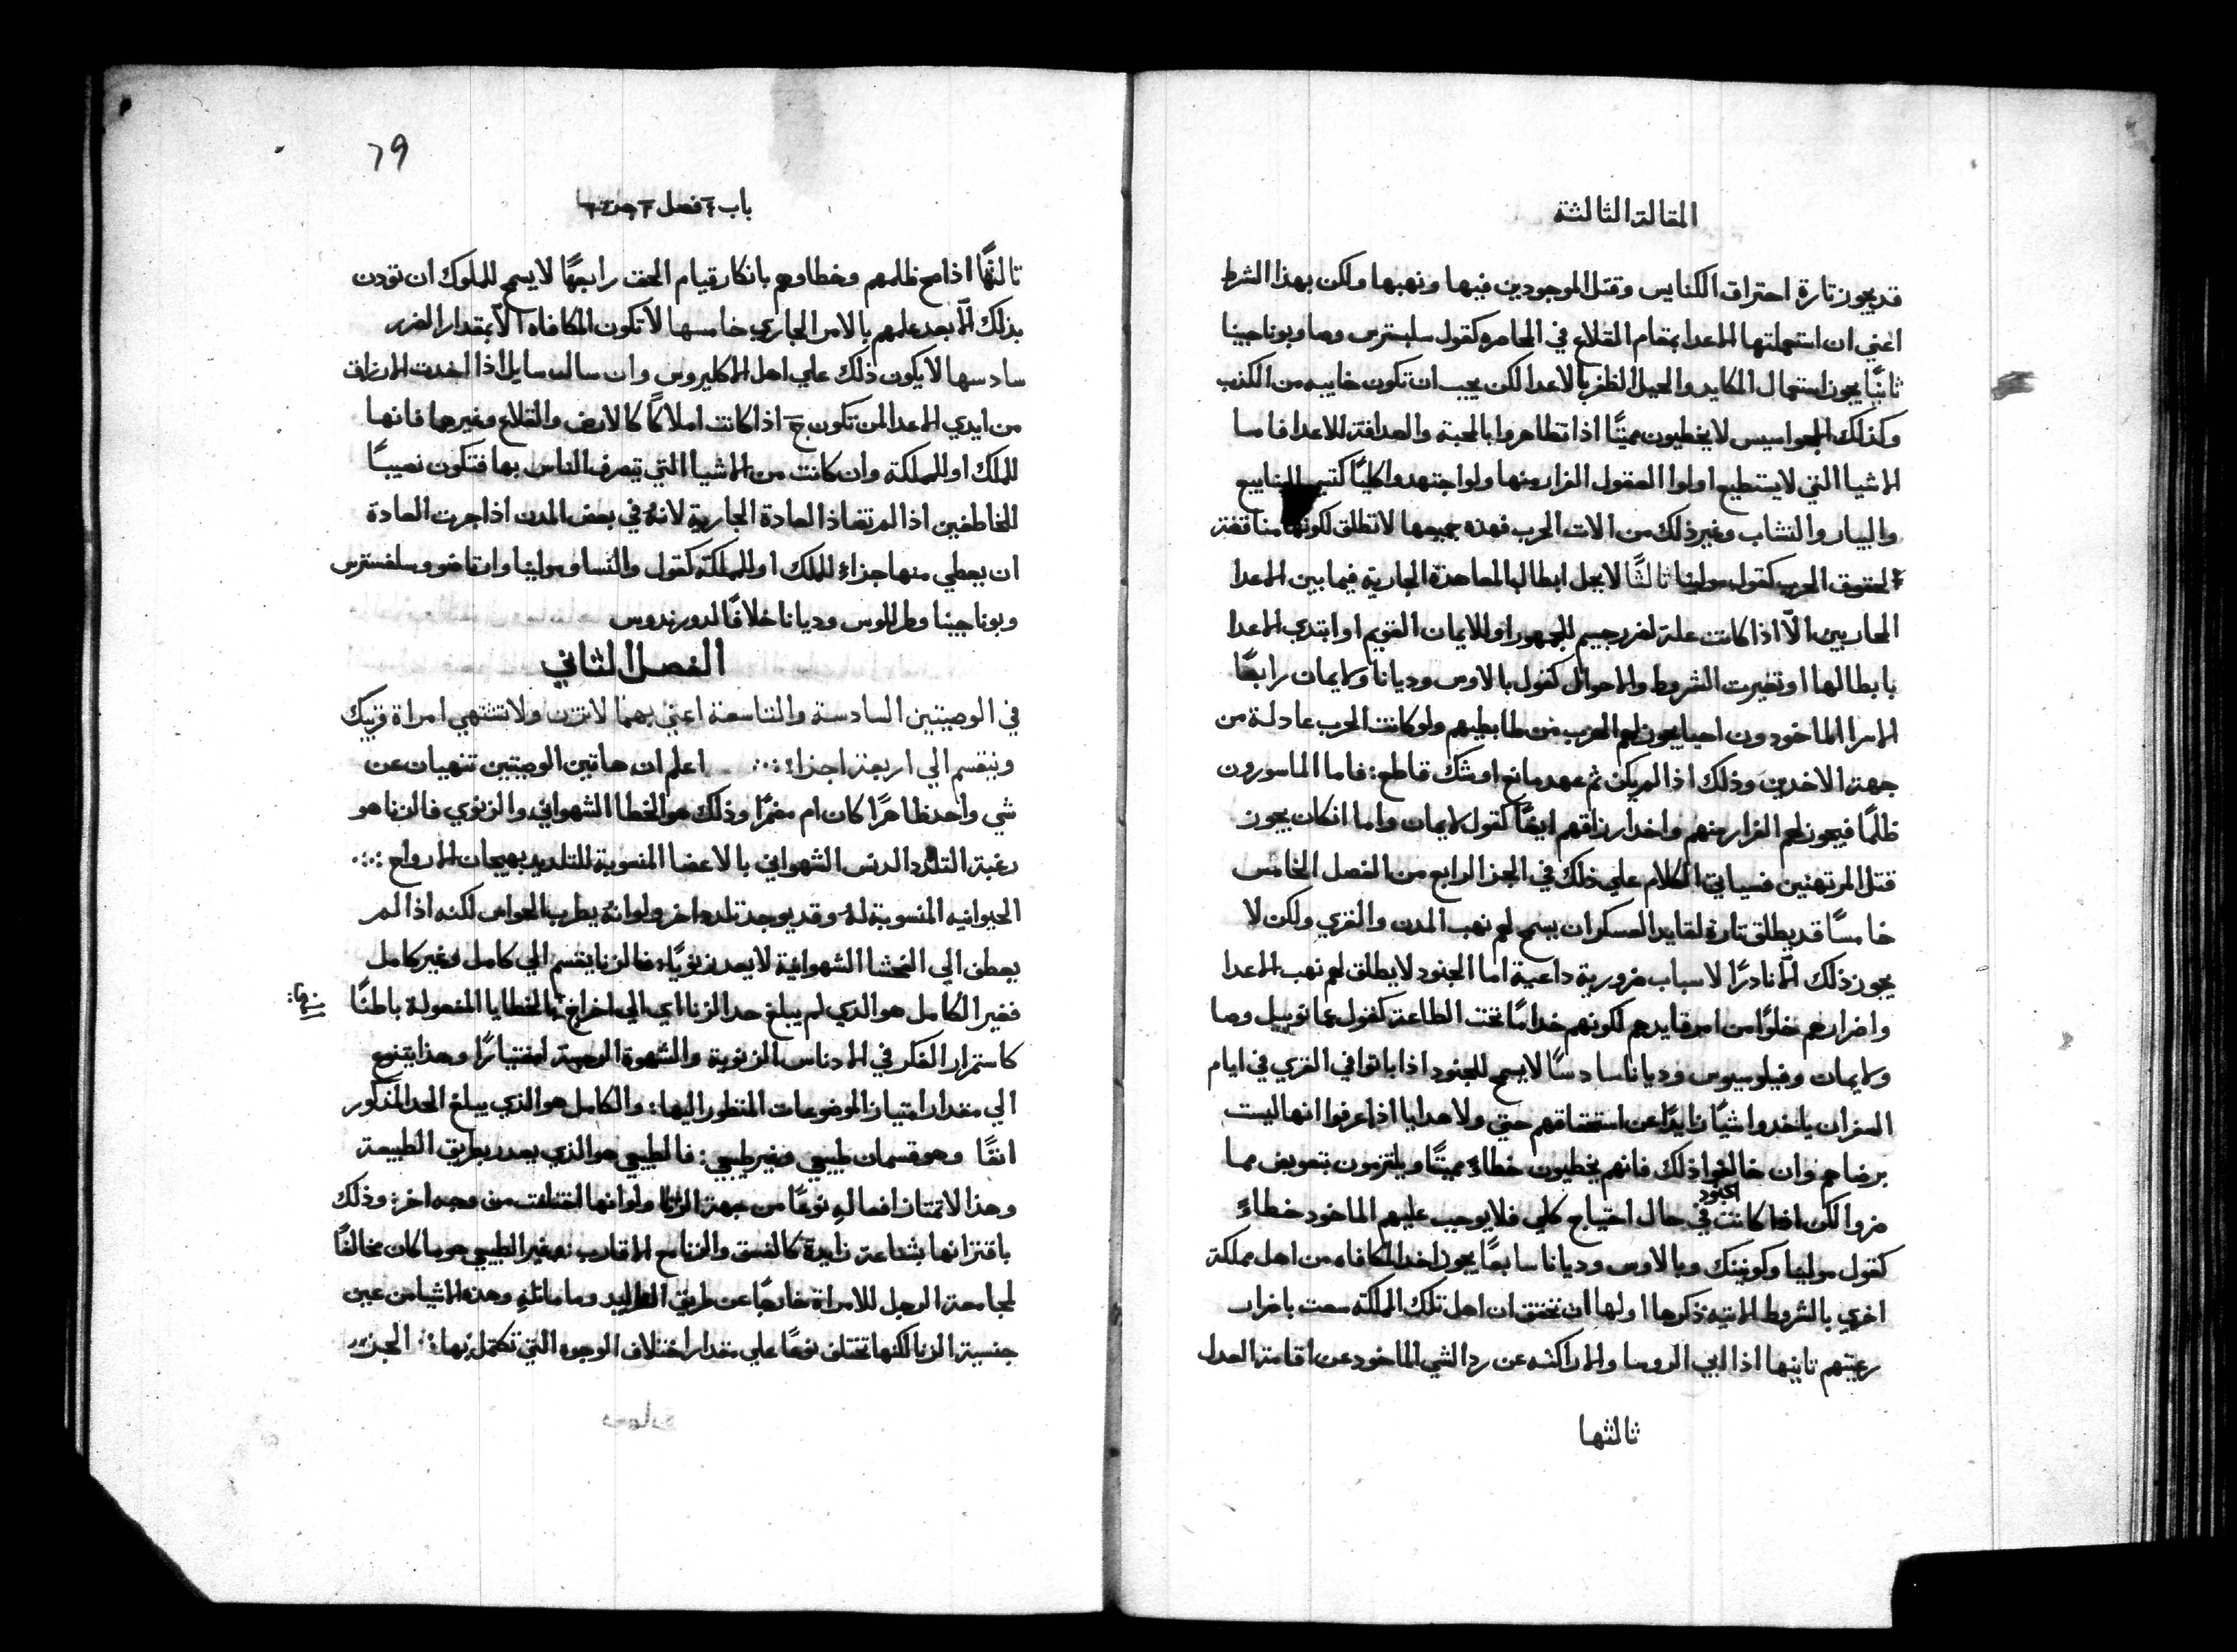 المقالة الثالثة
قد يجوز تارة احتراق الكنايس وقتل الموجودين فيها ونهبها ولكن بهذا الشرط
اعني ان استعملتها الاعدا بمقام القلاع في المحاصره كقول سلبسترس وصا وبوناجينا
ثانيًا يجوز استعمال المكايد والحيل الظفر بالاعدا لكن يجب ان تكون خاييه من الكذب
وكذلك الجواسيس لا يخطيون مميتًا اذا تظاهروا بالمحبة والصداقة للاعدا فاما
الاشيا التي لا يستطيع اولوا العقول الفرار منها ولو اجتهدوا كليًا كتسميم الينابيع
والبيار والنشاب وغير ذلك من الات الحرب فهذه جميعها لا تطلق لكونها مناقضة
لحقوق الحرب كقول مولينا ثالثًا لا يحل ابطال المعاهدة الجارية فيما بين الاعدا
المحاربين الاّ اذا كانت علة لضرر جسيم للجمهور او للايمان القويم او ابتدي الاعدا
بابطالها او تغيرت الشروط والاحوال كقول بالاوس وديانا ولايمان رابعًا
الاسرا الماخودون احيا يجوز لهم الهرب من ضابطيهم ولو كانت الحرب عادلة من
جهة الاخدين وذلك اذا لم يكن ثم عهد مانع او شك قاطع: فاما الماسورون
ظلمًا فيجوز لهم الفرار منهم واخد ارزاقهم ايضًا كقول لايمان واما انكان يجوز
قتل المرتهنين فسياتي الكلام علي ذلك في الجز الرابع من الفصل الخامس
خامسًا قد يطلق تارة لقايد العسكر ان يسمح لهم نهب المدن والقري ولكن لا
يجوز ذلك الاّ نادرًا لاسباب ضرورية داعية اما الجنود لا يطلق لهم نهب الاعدا
واضرارهم خلوًا من امر قايدهم لكونهم خدامًا تحت الطاعة كقول عمانوييل وصا
ولايمان وفيلوسيوس وديانا سادسًا لا يسمح للجنود اذا باتوا في القري في ايام
السفر ان ياخدوا شيًا زايدًا عن استحقاقهم حتي ولا هدايا اذا عرفوا انها ليست
برضاهم وان خالفوا ذلك فانهم يخطيون خطاءً مميتًا ويلتزمون بتعويض مما
ضروا لكن اذا كانت الجنود في حال احتياج كلي فلا يوجب عليهم الماخود خطاءً
كقول مولينا وكونينك وبالاوس وديانا سابعًا يجوز اخد المكافاه من اهل مملكة
اخري بالشروط الاتيه ذكرها اولها ان تحقق ان اهل تلك المملكة سعت باضرار
رعيتهم ثانيها اذا ابي الروسا والاراكنه عن رد الشي الماخود عن اقامة العدل
ثالثها
79
باب ٤ فصل ٢
ثالثها اذا صح ظلمهم وخطاوهم بانكار قيام الحق رابعها لا يسمح للملوك ان تودن
بذلك الاّ بعد علمهم بالامر الجاري خامسها لا تكون المكافاه الاّ بمقدار الضرر
سادسها لا يكون ذلك علي اهل الاكليروس وان سال سايل اذا اخدت الارزاق
من ايدي الاعدا لمن تكون ج اذا كانت املاكًا كالارض والقلاع وغيرها فانها
للملك او للمملكة وان كانت من الاشيا التي تيصرف الناس بها فتكون نصيبًا
للخاطفين اذا لم تضاذ العادة الجارية لانهُ في بعض المدن اذا جرت العادة
ان يعطي منها جزاء للملك او للمملكة كقول والنسا ومولينا وان قاضو وسلفسترس
وبوناجينا وطرللوس وديانا خلافًا لدورندوس
الفصل الثاني
في الوصيتين السادسة والتاسعة اعني بهما لا تزن ولا تشتهي امراة قريبك
وينقسم الي اربعة اجزاء ∴ اعلم ان هاتين الوصيتين تنهيان عن
شي واحد ظاهرًا كان ام مضمرًا وذلك هو الخطا الشهواني والزنوي فالزنا هو
رغبة التلدد الدنس الشهواني بالاعضا المنسوبة للتلديد بهيجان الارواح ∴
الحيوانيه المنسوبة لهُ وقد يوجد تلدد اخر ولو انهُ يطرب الحواس لكنه اذا لم
يعطف الي الفحشا الشهوانية لا يعد زنويًا، فالزنا يقسم الي كامل وغير كامل
فغير الكامل هو الدي لم يبلغ حد الزنا اي الي اخراج بالخطايا المفعولة باطنًا
كاستمرار الفكر في الادناس الزنوية والشهوة اختيارًا وهذا يتنوع
الي مقدار امتياز الموضوعات المنظور اليها: والكامل هو الذي يبلغ الحد المذكور
انفًا وهو قسمان طبيعي وغير طبيعي: فالطبيعي هو الذي يصدر بطريق الطبيعة
وهذا لا تمتاز افعاله نوعًا من جهة الزنا ولو انها اختلفت من وجه اخر: وذلك
باقترانها بشناعة زايدة كالفسق والزنا مع الاقارب غير الطبيعي هو ما كان مخالفًا
لمجامعة الرجل للامراة خارجًا عن طريق التواليد وما ماثله وهذه الاشيا من عين
جنسية الزنا لكنها تختلف نوعًا علي مقدار اختلاف الوجوه التي تكتمل بها: الجزء